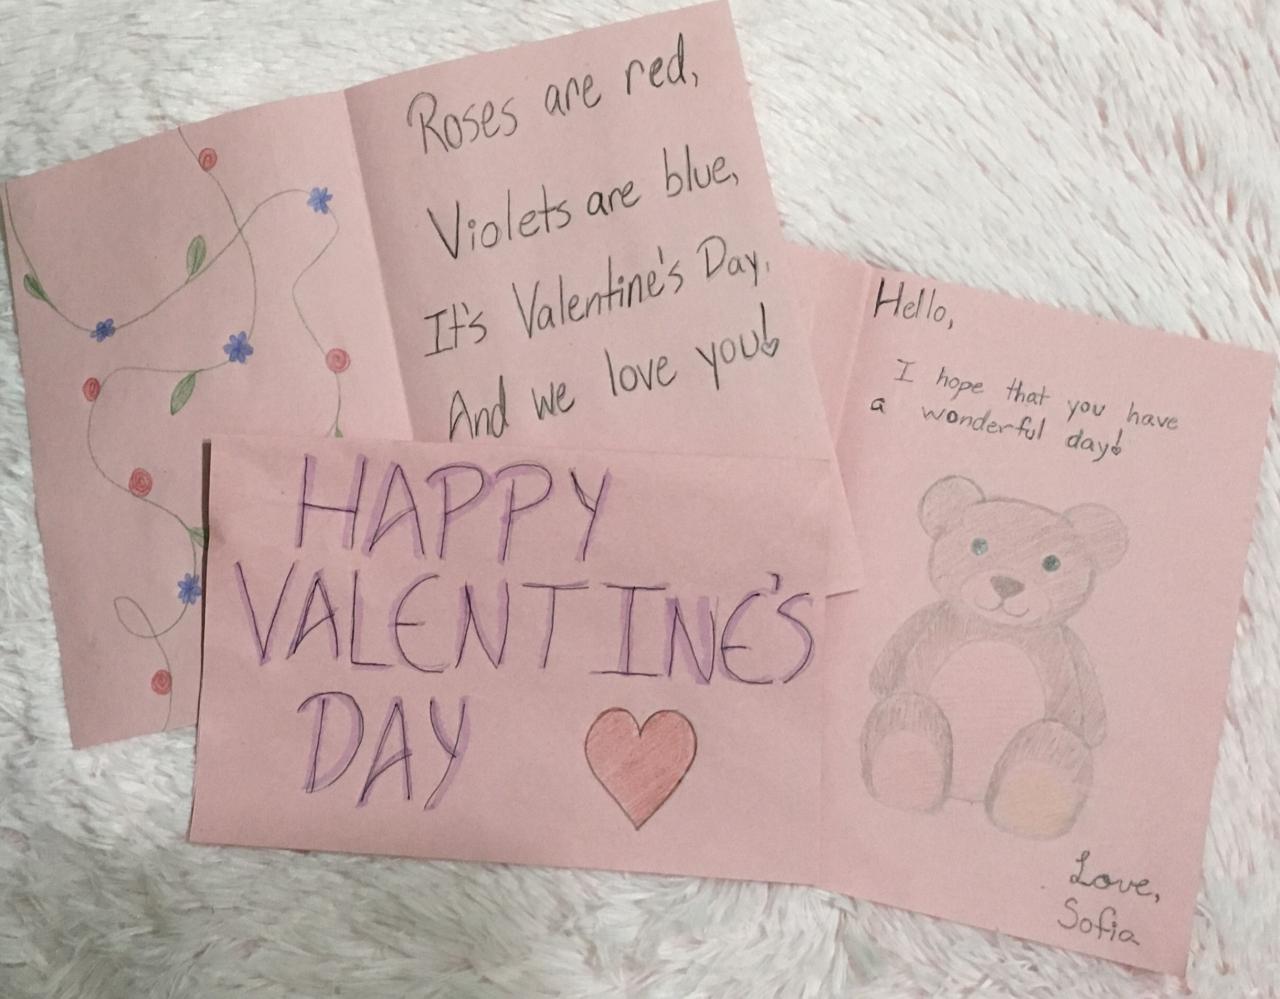 Roses are red,
Violets are blue,
It's Valentine's Day,
And we love you!
HAPPY
VALENTINE'S
DAY
Hello,
I hope that you have
a wonderful day!
Love,
Sofia